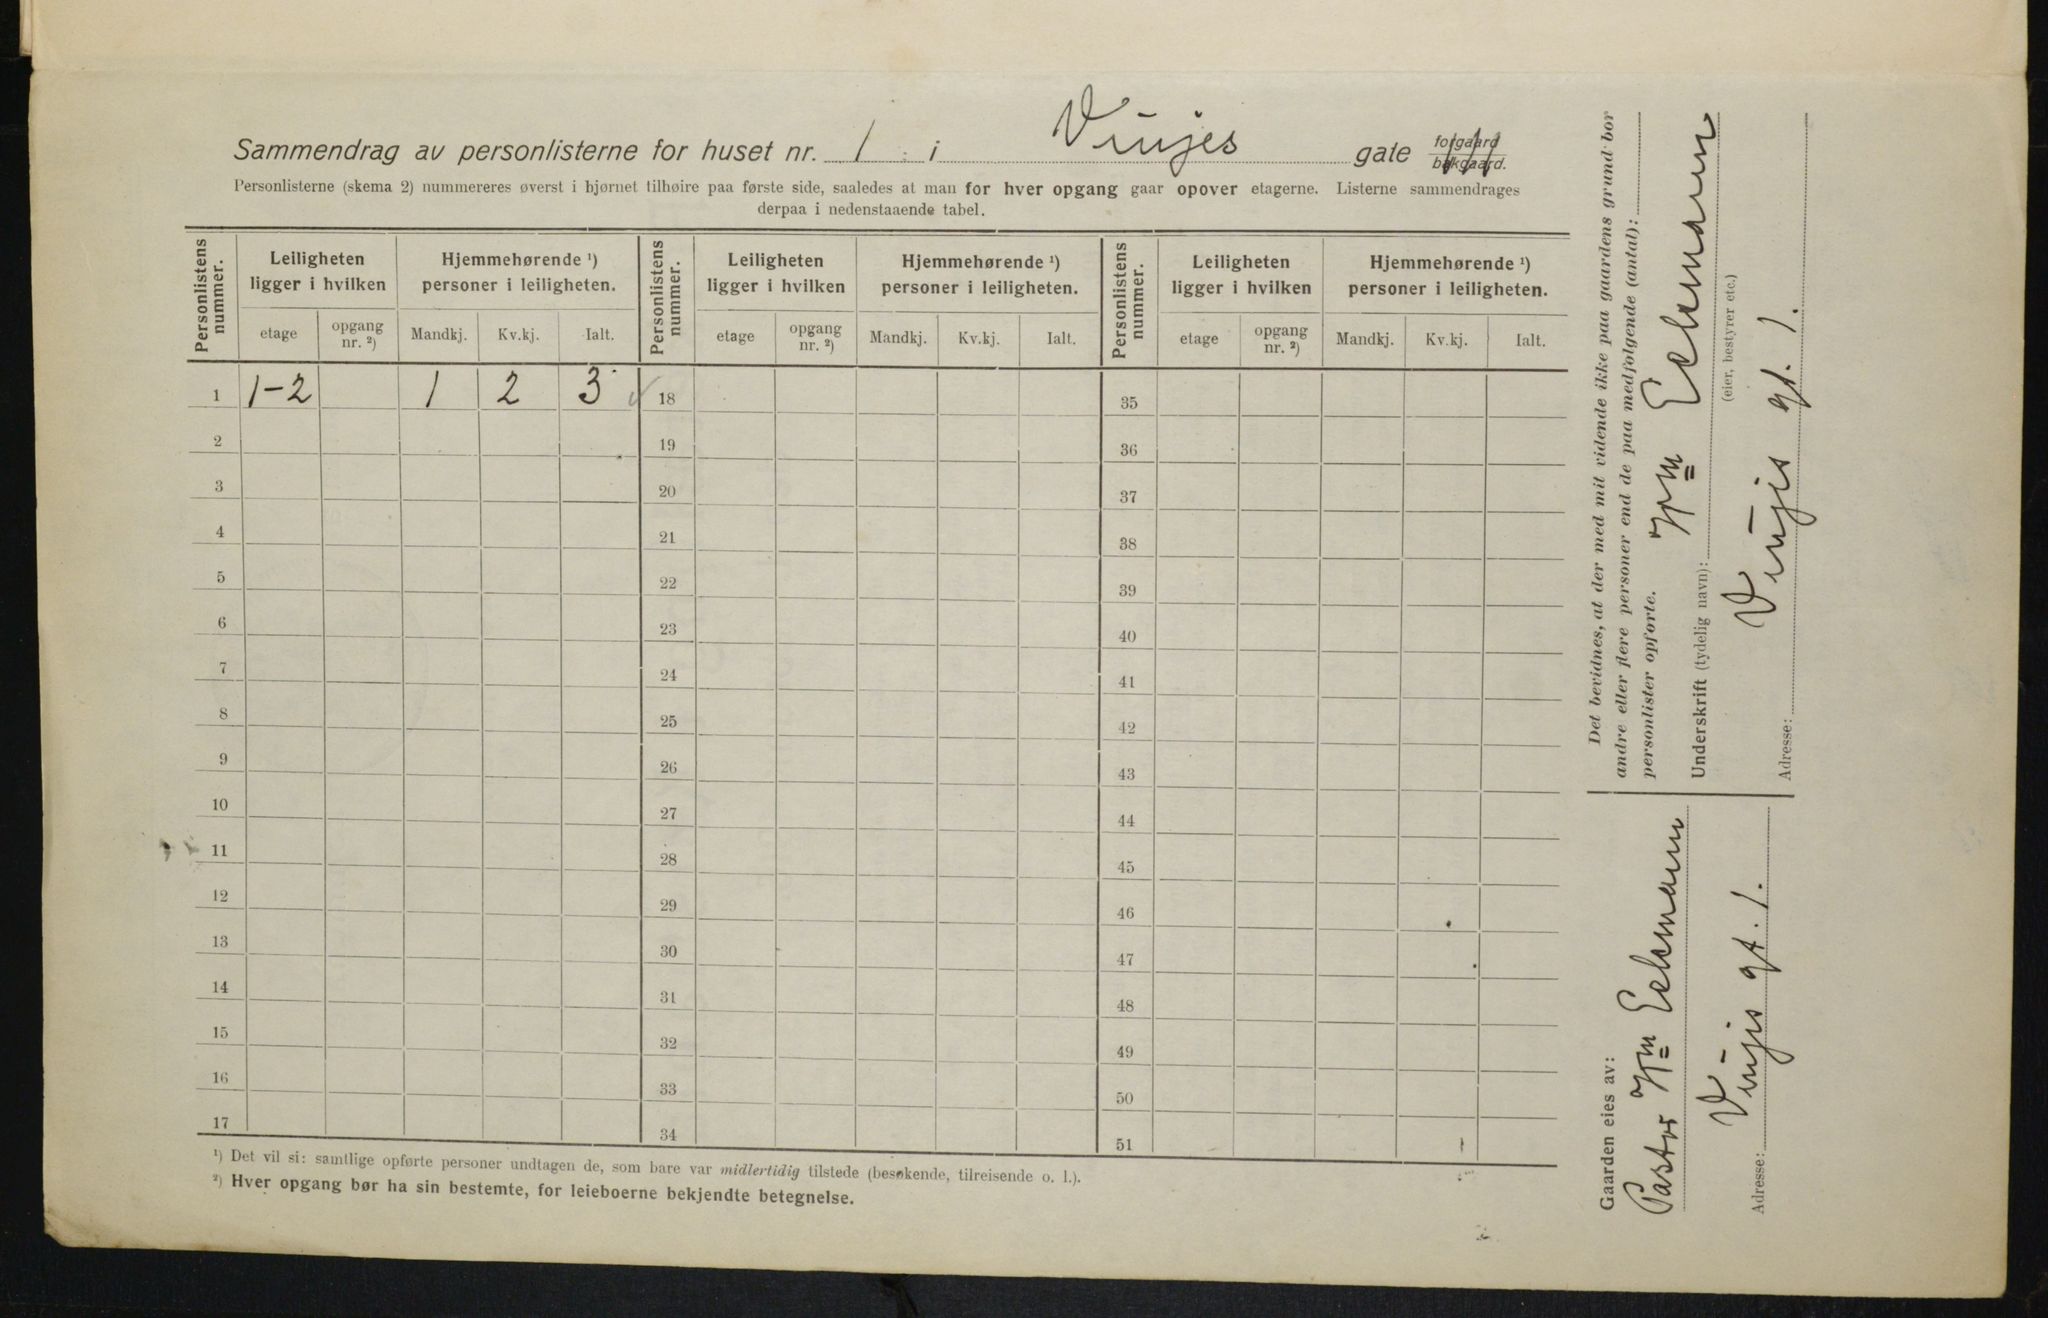 Sammendrag av personlisterne for huset nr. 1 i Vinjes gate forgaard bakgaard.
Personlisterne (skema 2) nummereres øverst i hjørnet tilhøire paa første side, saaledes at man for hver opgang gaar opover etagerne. Listerne sammendrages
derpaa i nedenstaaende tabel.
Personlistens nummer. Leiligheten ligger i hvilken Hjemmehørende ¹) personer i leiligheten. Personlistens nummer. Leiligheten ligger i hvilken Hjemmehørende ¹) personer i leiligheten. Personlistens nummer. Leiligheten ligger i hvilken Hjemmehørende ¹) personer i leiligheten.
etage opgang nr. ²) Mandkj. Kv.kj. Ialt. etage opgang nr. ²) Mandkj. Kv.kj. Ialt. etage opgang nr. ²) Mandkj. Kv.kj. Ialt.
1 1-2 1 2 3 18 35
2 19 36
3 20 37
4 21 38
5 22 39
6 23 40
7 24 41
8 25 42
9 26 43
10 27 44
11 28 45
12 29 46
13 30 47
14 31 48
15 32 49
16 33 50
17 34 51
¹) Det vil si: samtlige opførte personer undtagen de, som bare var midlertidig tilstede (besøkende, tilreisende o. l.).
²) Hver opgang bør ha sin bestemte, for leieboerne bekjendte betegnelse.
Det bevidnes, at der med mit vidende ikke paa gaardens grund bor
andre eller flere personer end de paa medfølgende (antal):
personlister opførte.
Underskrift (tydelig navn): Wm Eckmann
(eier, bestyrer etc.)
Adresse: Vinjes gt. 1.
Gaarden eies av:
Pastor Wm Eckmann
Adresse: Vinjes gt. 1.